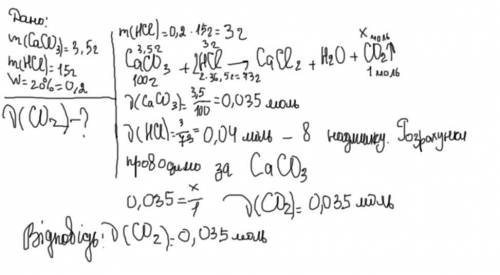 Дано:
m(CaCO₃)=3,5г
m(HCl)=15г
W=20%=0,2
ν(CO₂)-?
m(HCl)=0,2·15г=3г
3,5г 3г x моль
CaCO₃ + 2HCl → CaCl₂ + H₂O + CO₂↑
100г 2·36,5г=73г 1 моль
ν(CaCO₃)=3,5/100=0,035 моль
ν(HCl)=3/73=0,04 моль – В надлишку. Розрахунки
проводимо за CaCO₃
0,035=x/1 ν(CO₂)=0,035 моль
Відповідь: ν(CO₂)=0,035 моль